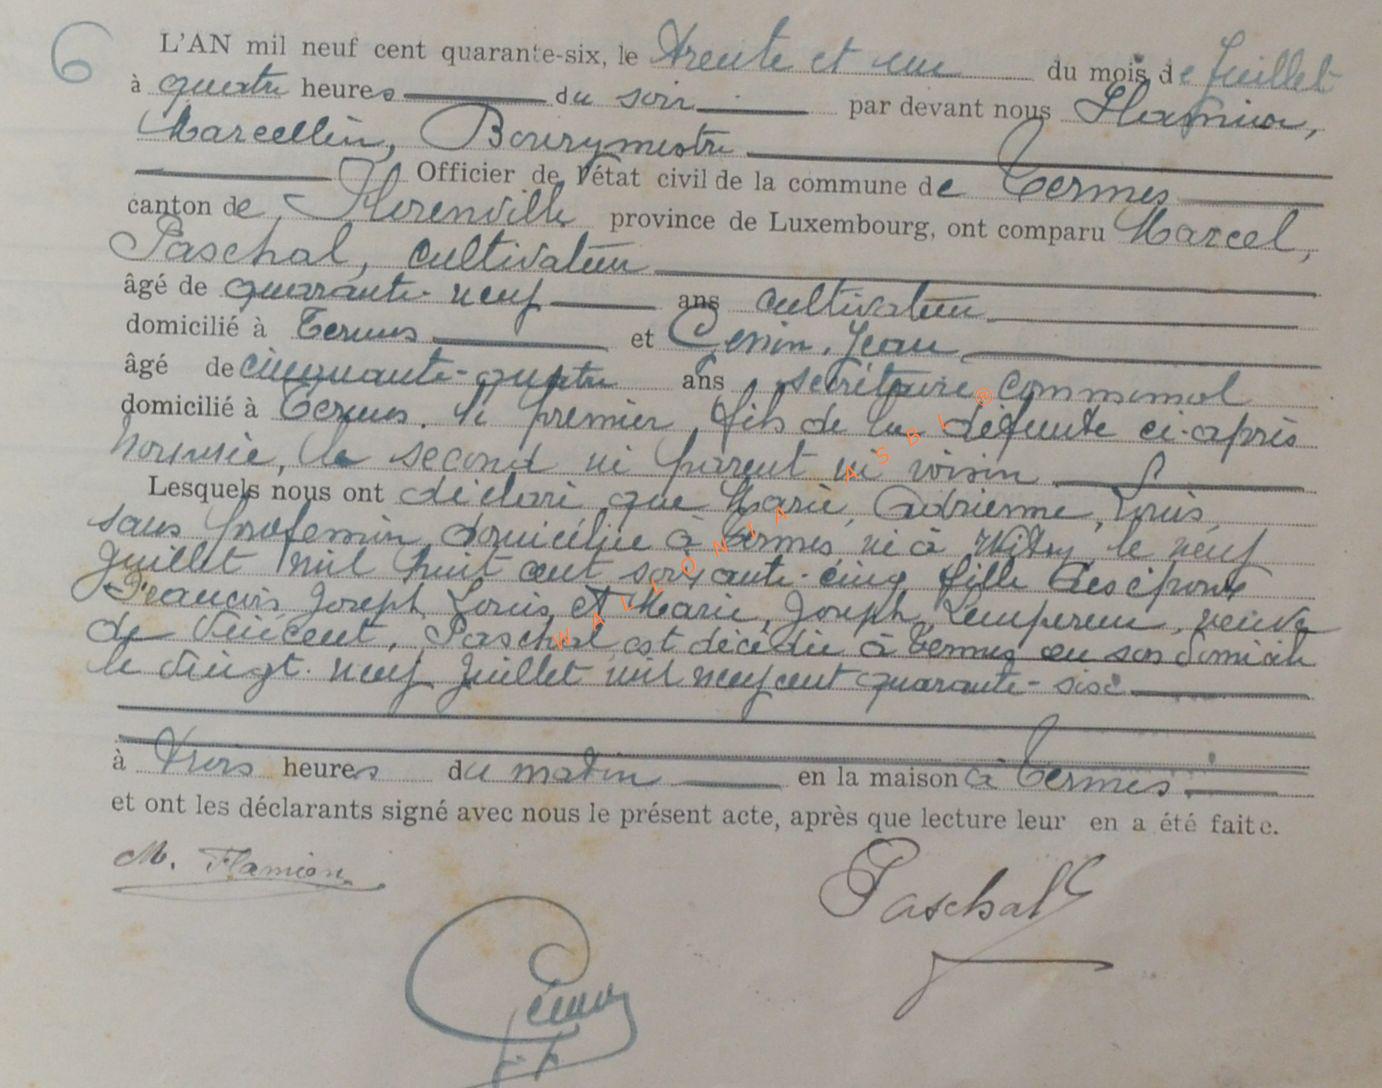 6
L'AN mil neuf cent quarante-six, le Trente et un du mois de Juillet
à quatre heures du soir par devant nous Flamion,
Marcellin, Bourgmestre
Officier de l'état civil de la commune de Termes
canton de Florenville province de Luxembourg, ont comparu Marcel,
Paschal, cultivateur
âgé de quarante-neuf ans cultivateur
domicilié à Termes et Jean
âgé de cinquante-quatre ans secrétaire communal
domicilié à Termes. le premier fils de la défunte ci-après
nommée, le second ni parent ni voisin
Lesquels nous ont déclaré que Marie, Adrienne, Louis,
sans profession domiciliée à Termes née à Witry le neuf
Juillet mil huit cent soixante-cinq fille des époux
François Joseph Louis et Marie, Joseph, Lempereur, veuve
de Vincent, Paschal est décédée à Termes en son domicile
le vingt-neuf Juillet mil neuf cent quarante-six
à Trois heures du matin en la maison à Termes
et ont les déclarants signé avec nous le présent acte, après que lecture leur en a été faite.
M. Flamion
Paschal
WALLONIA ASBL ®